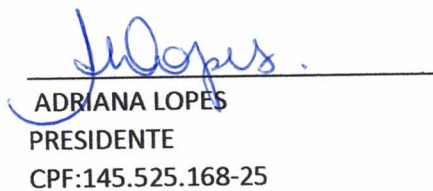 ADRIANA LOPES
PRESIDENTE
CPF:145.525.168-25